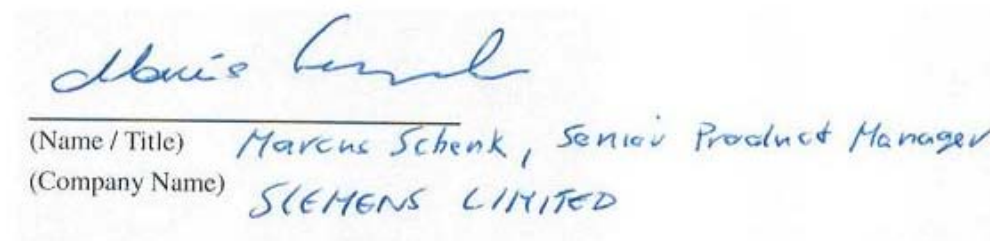 (Name / Title) Marcus Schenk, Senior Product Manager
(Company Name) SIEMENS LIMITED